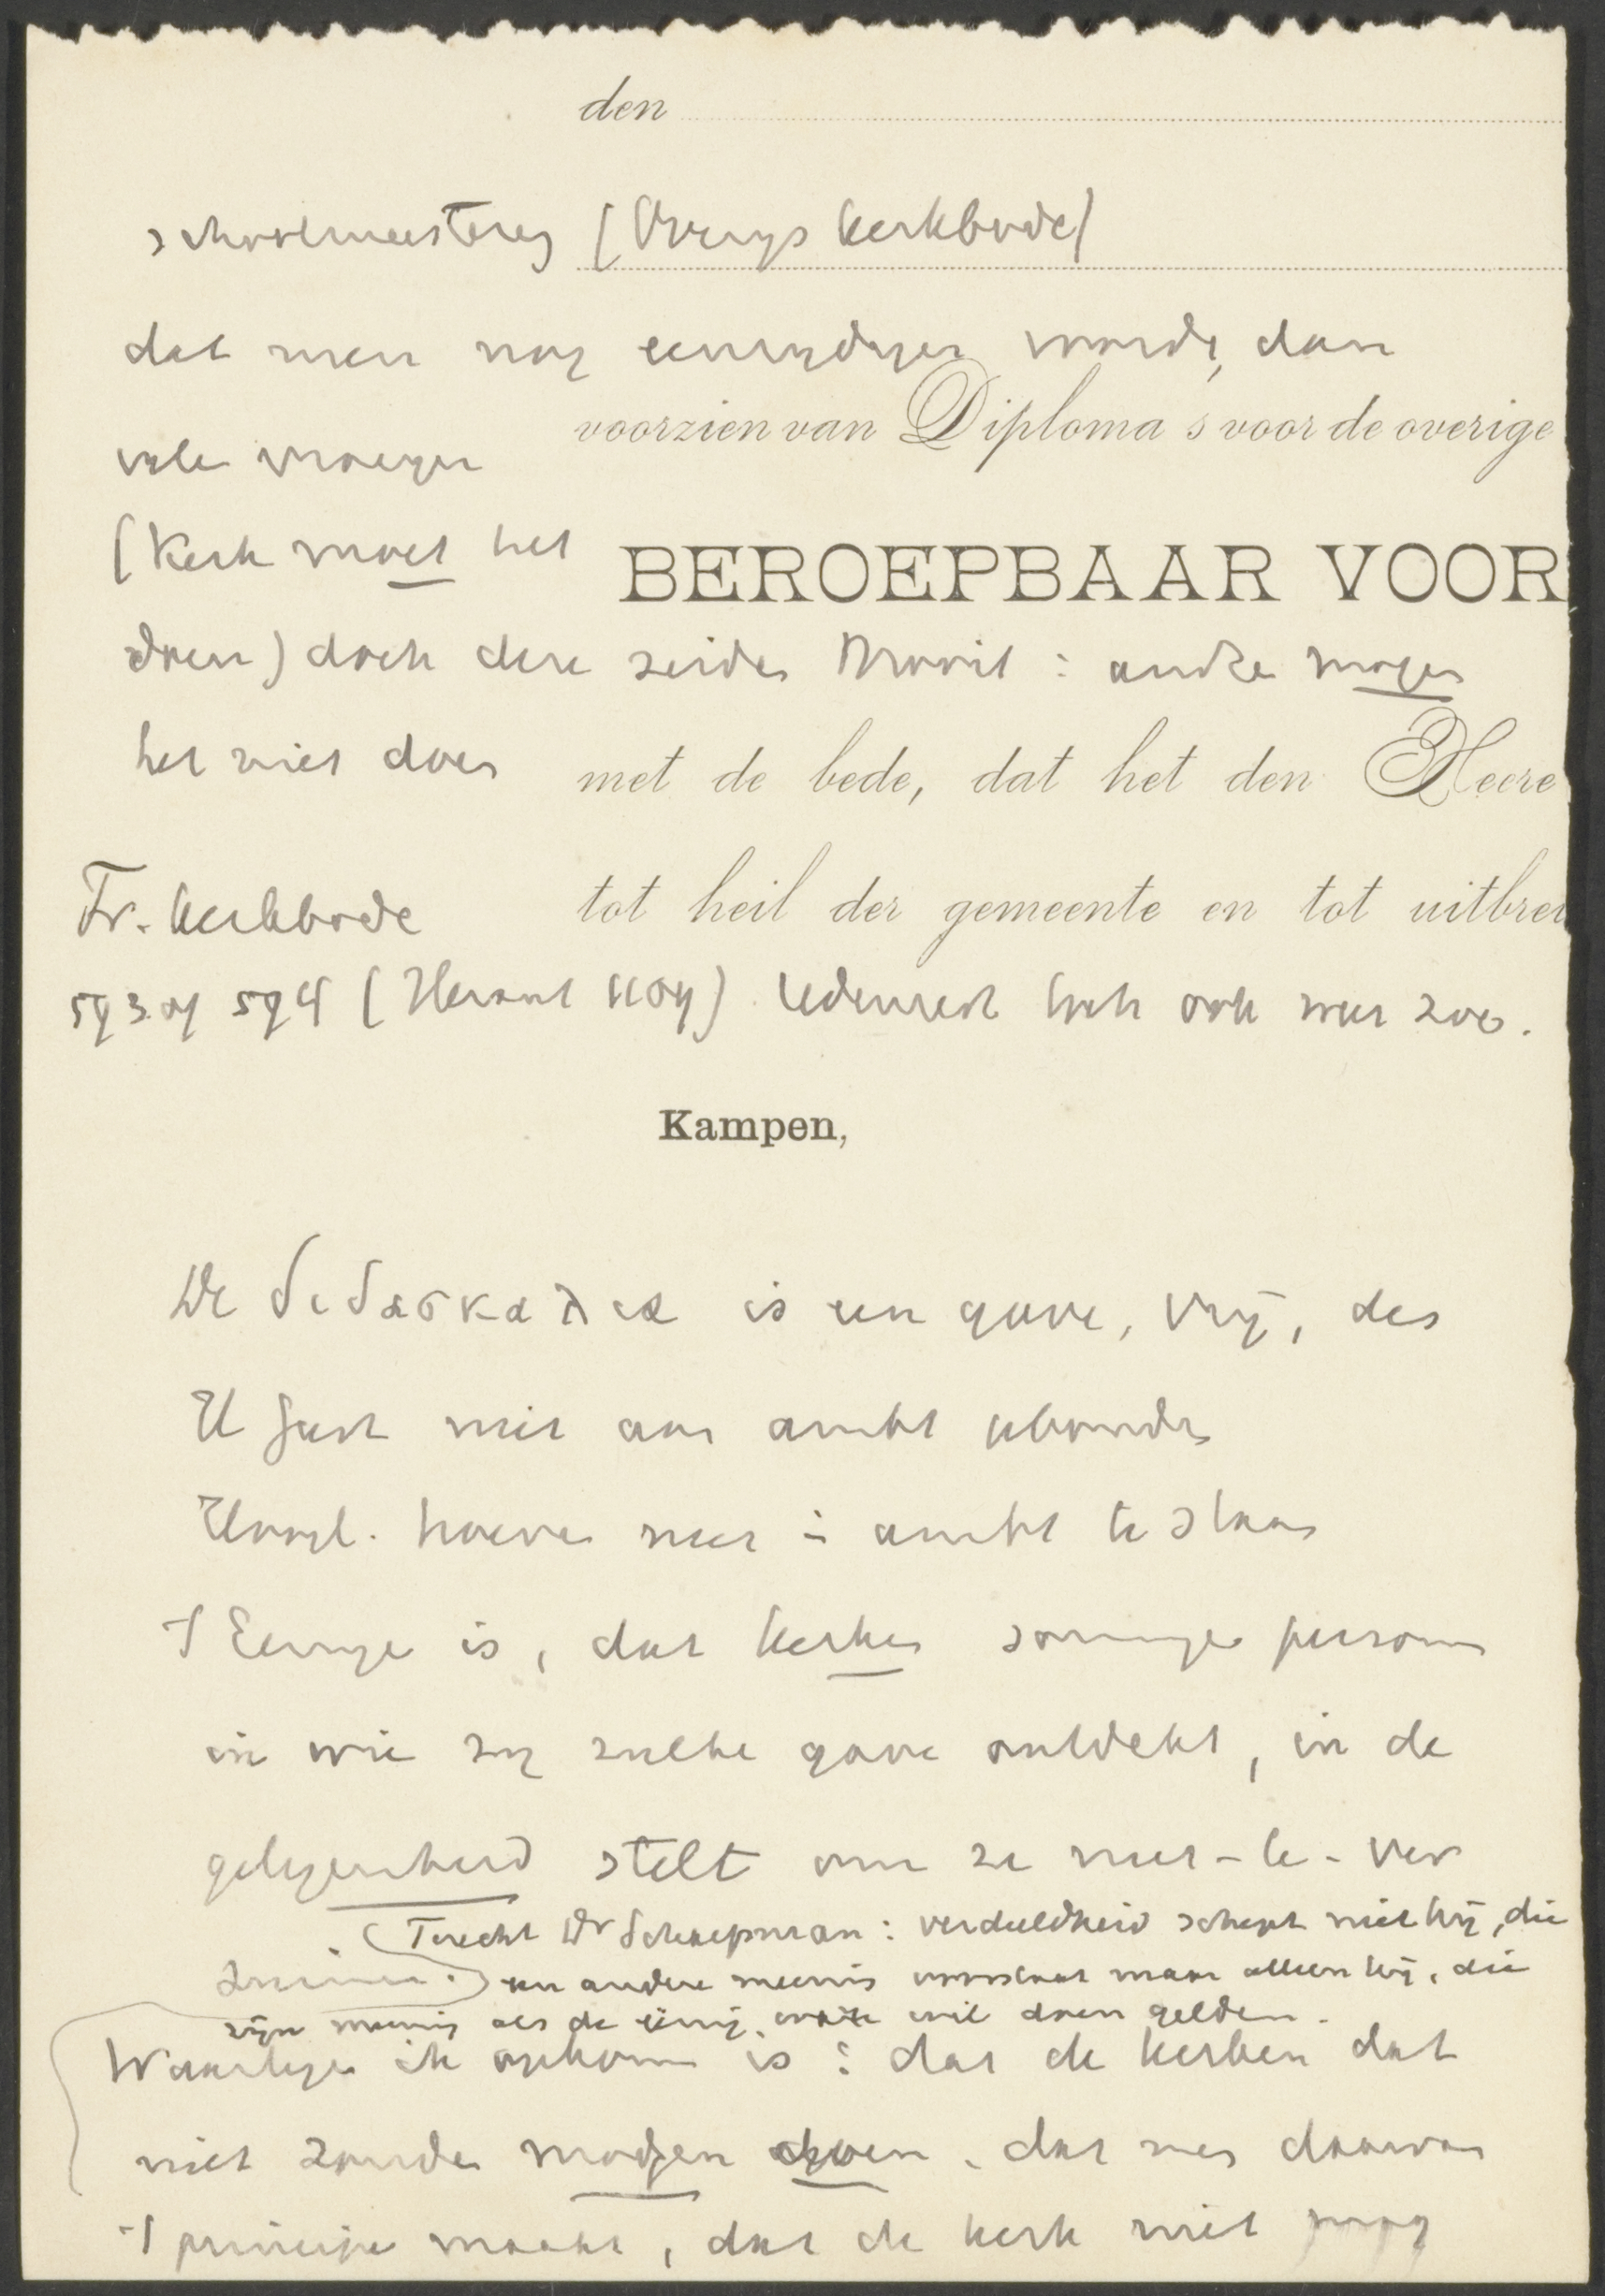 den
schoolmeestery (Overijs kerkbode)
dat men nog eenzydiger wordt, dan
vele vroeger
voorzien van Diploma s voor de overige
(Kerk moet het
BEROEPBAAR VOOR
doen) doch deze zeiden nooit : andre mogen
het niet doen
met de bede, dat het den Heere
tot heil der gemeente en tot uitbrei
Fr. Kerkbode
593 of 594 (Heraut 1109) ook niet zoo.
Kampen,
De διδασκαλια is een gave, vrij, des
H Geest niet aan ambt gebonden
Evangl. hoeven niet in ambt te staan
't Eenige is, dat kerken sommige personen
in wie zij zulke gave ontdekt, in de
gelegenheid stelt om ze meer-te-ver
(Terecht Dr Schaepman: verdeeldheid schept niet hij, die
een andere meening voorstaat maar alleen hij, die
zijn meening als de eenig ware wil doen gelden.
Waartegen ik opkom is : dat de kerken dat
niet zouden mogen doen. dat men daarvan
't principe maakt, dat de kerk niet mag